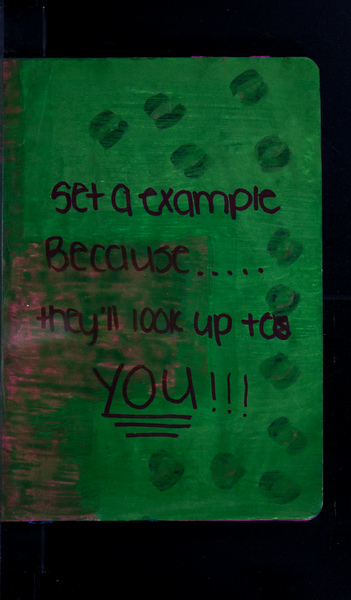 Set a example
Because.....
they'll look up to
YOU!!!